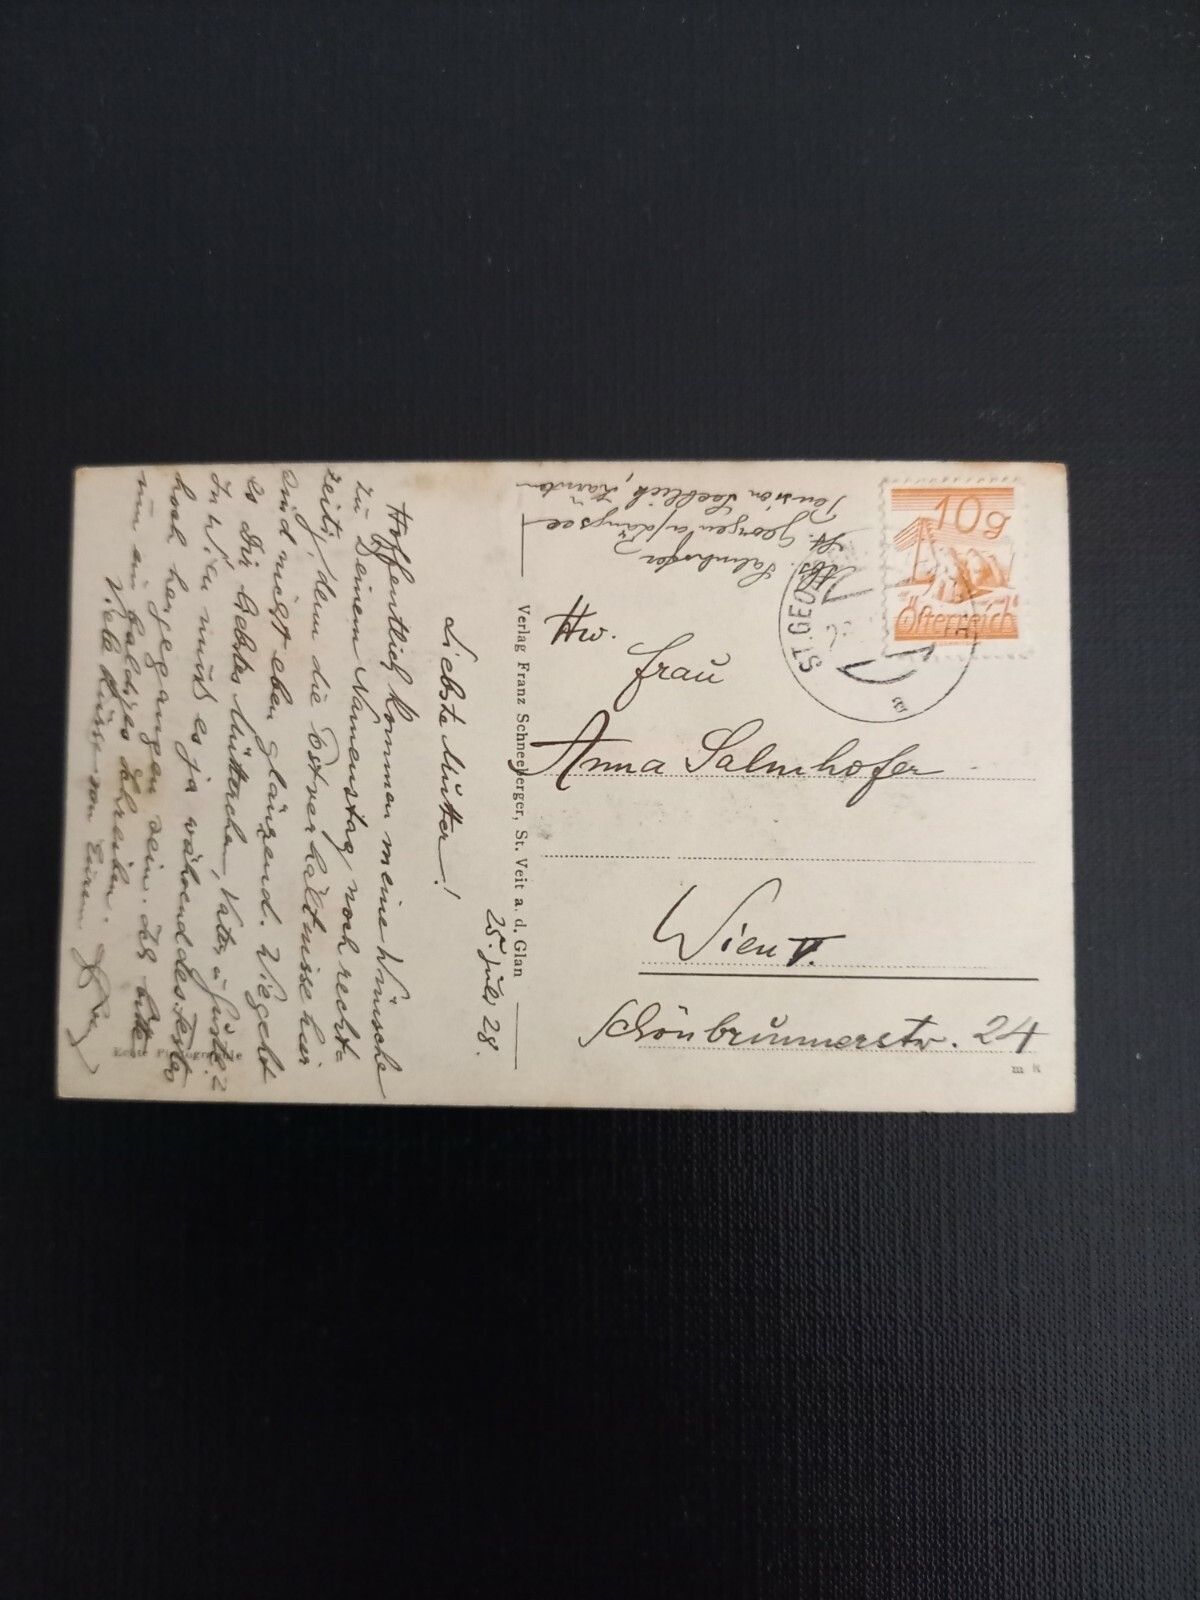 25. Juli 28.
Liebste Mutter!
Hoffentlich kommen meine Wünsche
zu Deinem Namenstag noch recht-
zeitig, denn die Postverhältnisse hier
sind nicht eben glänzend. Wie geht
es Dir liebstes Mütterchen, Vater u.
In Wien muß es ja während des Festes
hoch hergegangen sein. Ich bitte
um ein baldiges Schreiben.
Viele Küsse von Eurem
Echte Photographie
Verlag Franz Schneeberger, St. Veit a. d. Glan
Abs. Salmhofer
St. Georgen a/Längsee
Pension Seeblick, Kärnten
10g
Österreich
ST. GEO
Hw.
Frau
Anna Salmhofer
Wien V.
Schönbrunnerstr. 24
m R